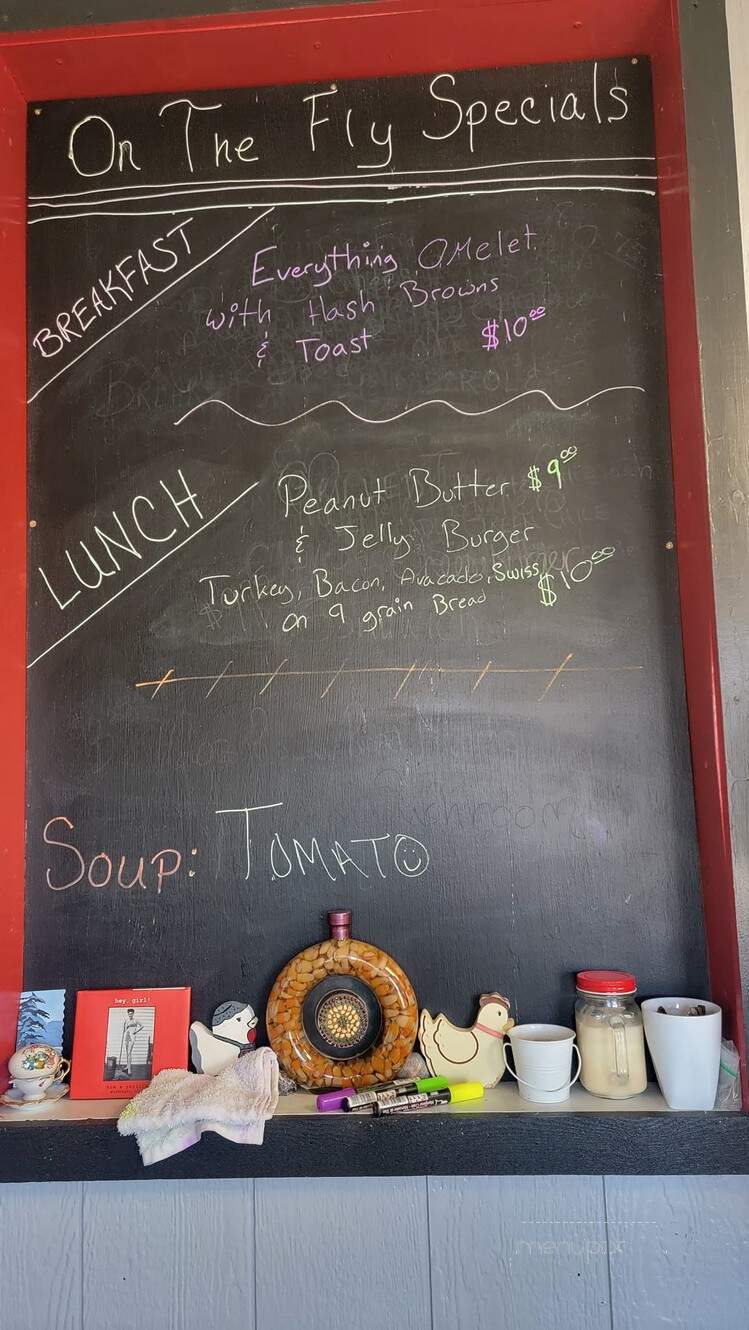 On The Fly Specials
BREAKFAST
Everything OMelet
with Hash Browns
& Toast $10.00
LUNCH
Peanut Butter $9.00
& Jelly Burger
Turkey, Bacon, Avacado, Swiss
on 9 grain Bread $10.00
Soup: TOMATO
hey, girl!
menupix